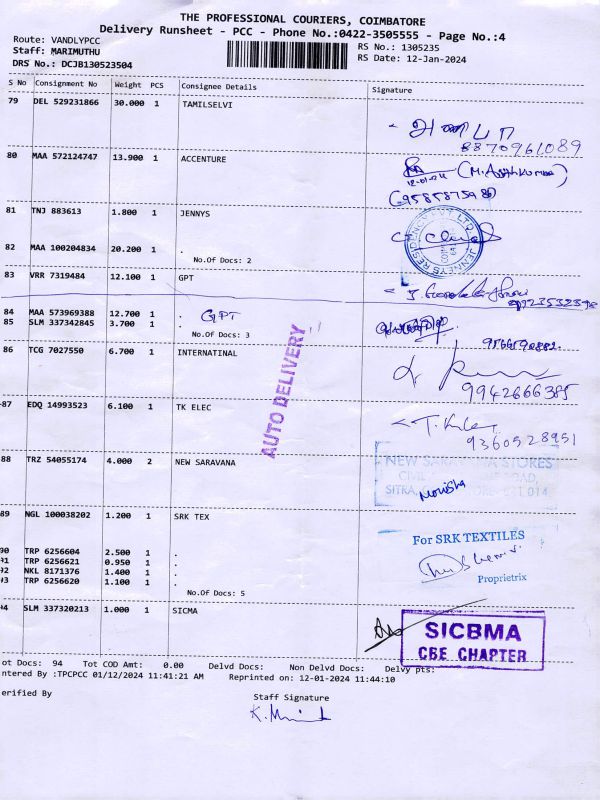 THE PROFESSIONAL COURIERS, COIMBATORE
Delivery Runsheet - PCC - Phone No.:0422-3505555 - Page No.:4
Route: VANDLYPCC
Staff: MARIMUTHU
DRS No.: DCJB130523504
RS No.: 1305235
RS Date: 12-Jan-2024
S No Consignment No Weight PCS Consignee Details Signature
79 DEL 529231866 30.000 1 TAMILSELVI
8870961089
80 MAA 572124747 13.900 1 ACCENTURE
12.01.24
81 TNJ 883613 1.800 1 JENNYS
JENNEYS RESIDENCY PVT LTD
82 MAA 100204834 20.200 1 .
No.Of Docs: 2
83 VRR 7319484 12.100 1 GPT
84 MAA 573969388 12.700 1 . GPT
85 SLM 337342845 3.700 1
No.Of Docs: 3
86 TCG 7027550 6.700 1 INTERNATINAL
9942666385
AUTO DELIVERY
87 EDQ 14993523 6.100 1 TK ELEC
9360528951
88 TRZ 54055174 4.000 2 NEW SARAVANA
NEW SARAVANA STORES
CIVIL
SITRA, 641 014
Monisha
89 NGL 100038202 1.200 1 SRK TEX
For SRK TEXTILES
Proprietrix
90 TRP 6256604 2.500 1 .
91 TRP 6256621 0.950 1 .
92 NKL 8171376 1.400 1 .
93 TRP 6256620 1.100 1 .
No.Of Docs: 5
94 SLM 337320213 1.000 1 SICMA
SICBMA
CBE CHAPTER
ot Docs: 94 Tot COD Amt: 0.00 Delvd Docs: Non Delvd Docs: Delvy pts:
ntered By :TPCPCC 01/12/2024 11:41:21 AM Reprinted on: 12-01-2024 11:44:10
erified By
Staff Signature